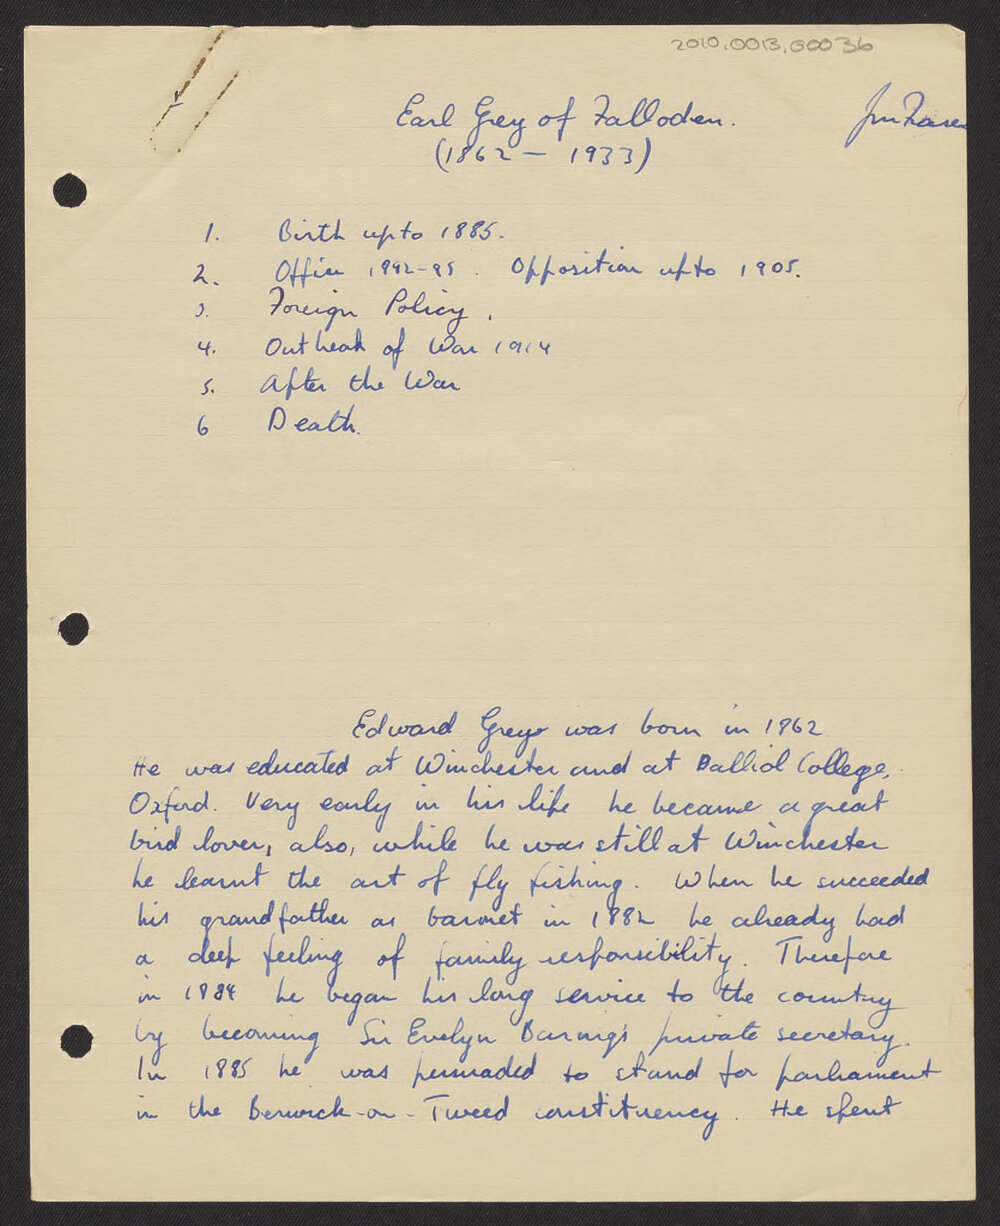 2010.0013.00036
Earl Grey of Falloden.
Jm Fraser
(1862 — 1933)
1. Birth upto 1885.
2. Office 1892-95. Opposition upto 1905.
3. Foreign Policy.
4. Outbreak of War 1914
5. After the War
6 Death.
Edward Grey was born in 1862
He was educated at Winchester and at Balliol College,
Oxford. Very early in his life he became a great
bird lover, also, while he was still at Winchester
he learnt the art of fly fishing. When he succeeded
his grandfather as baronet in 1882 he already had
a deep feeling of family responsibility. Therefore
in 1884 he began his long service to the country
by becoming Sir Evelyn Baring's private secretary.
In 1885 he was persuaded to stand for parliament
in the Berwick-on-Tweed constituency. He spent